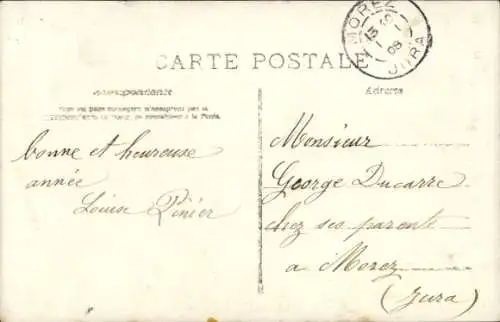 MOREZ
13
1
08
JURA
CARTE POSTALE
Correspondance
Adresse
bonne et heureuse
année
Louise Pinier
Monsieur
George Ducarre
chez ses parents
a Morez
(Jura)